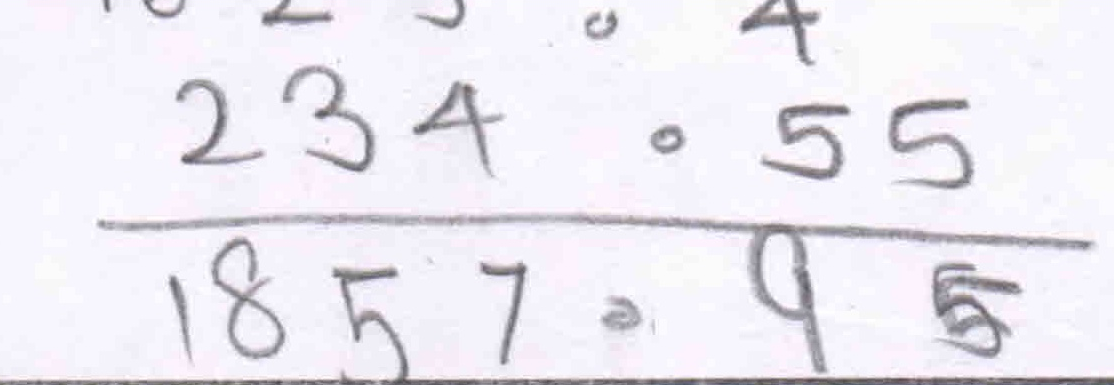 23.4
234.55
1857.95